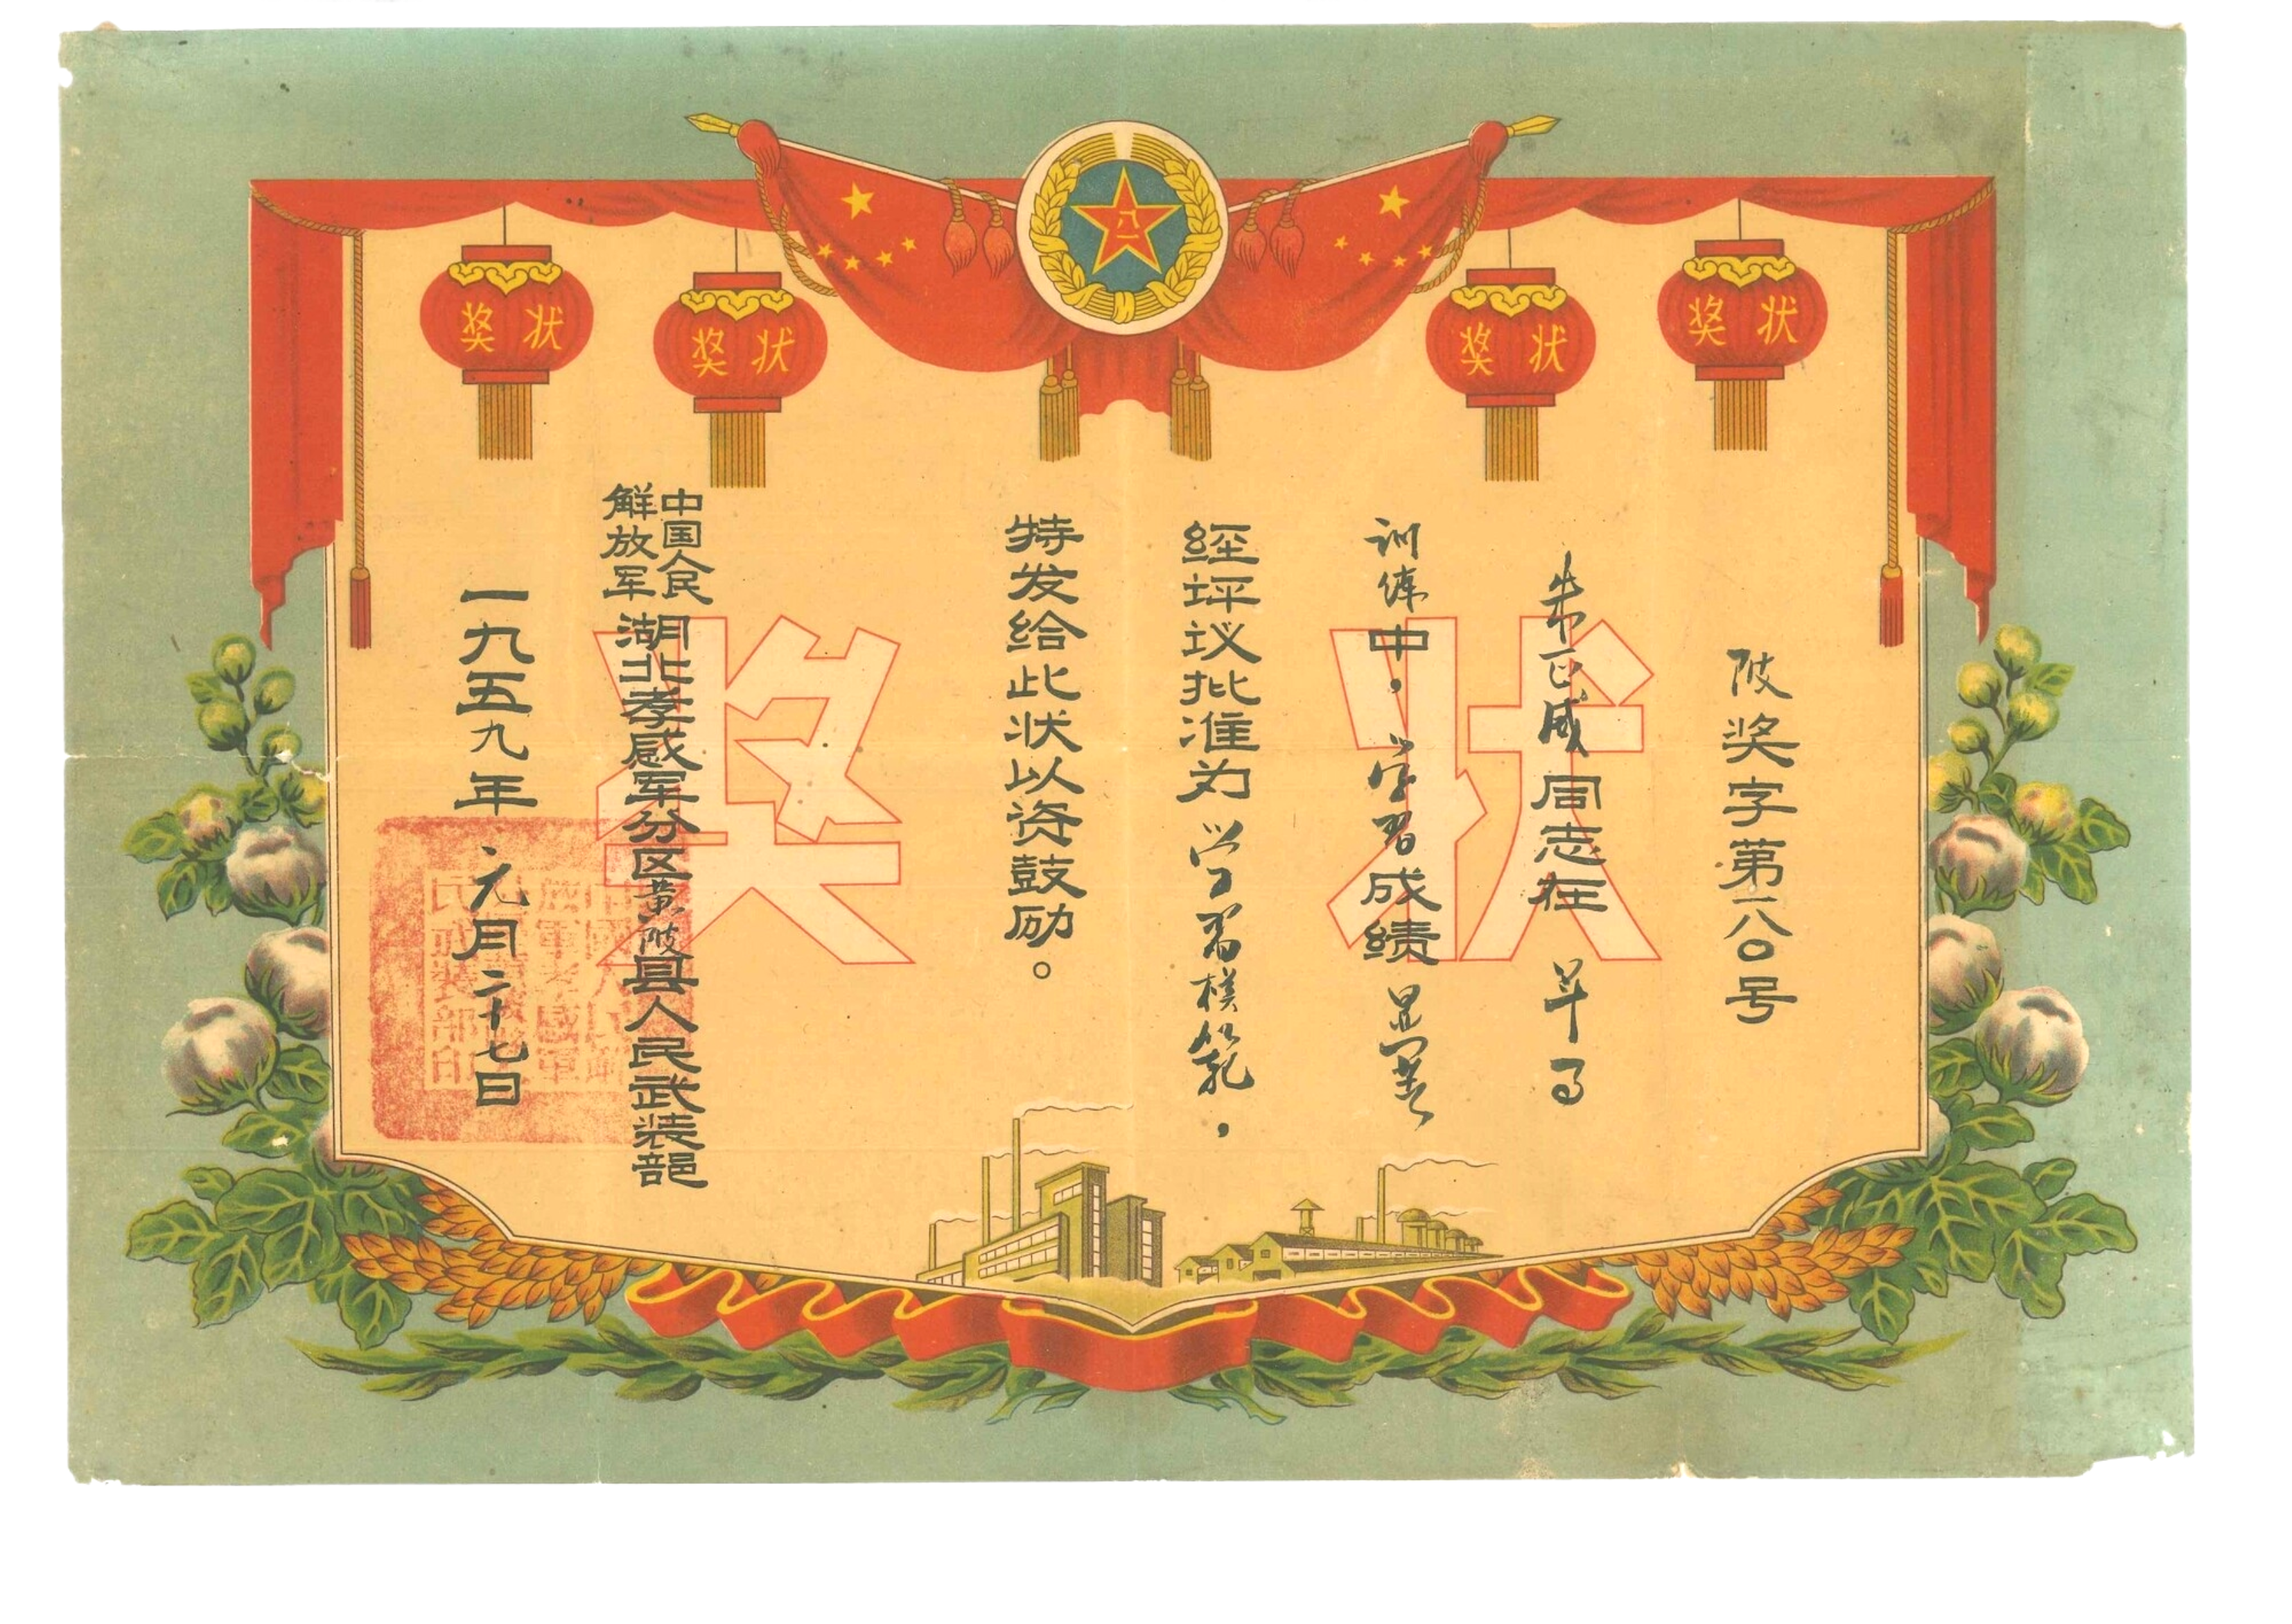 奖状
奖状
奖状
奖状
八一
奖状
陂奖字第一八〇号
朱正威同志在军事
训练中，学习成绩显著
经坪议批准为学习模范，
特发给此状以资鼓励。
中国人民
解放军
湖北孝感军分区黄陂县人民武装部
一九五九年元月二十七日